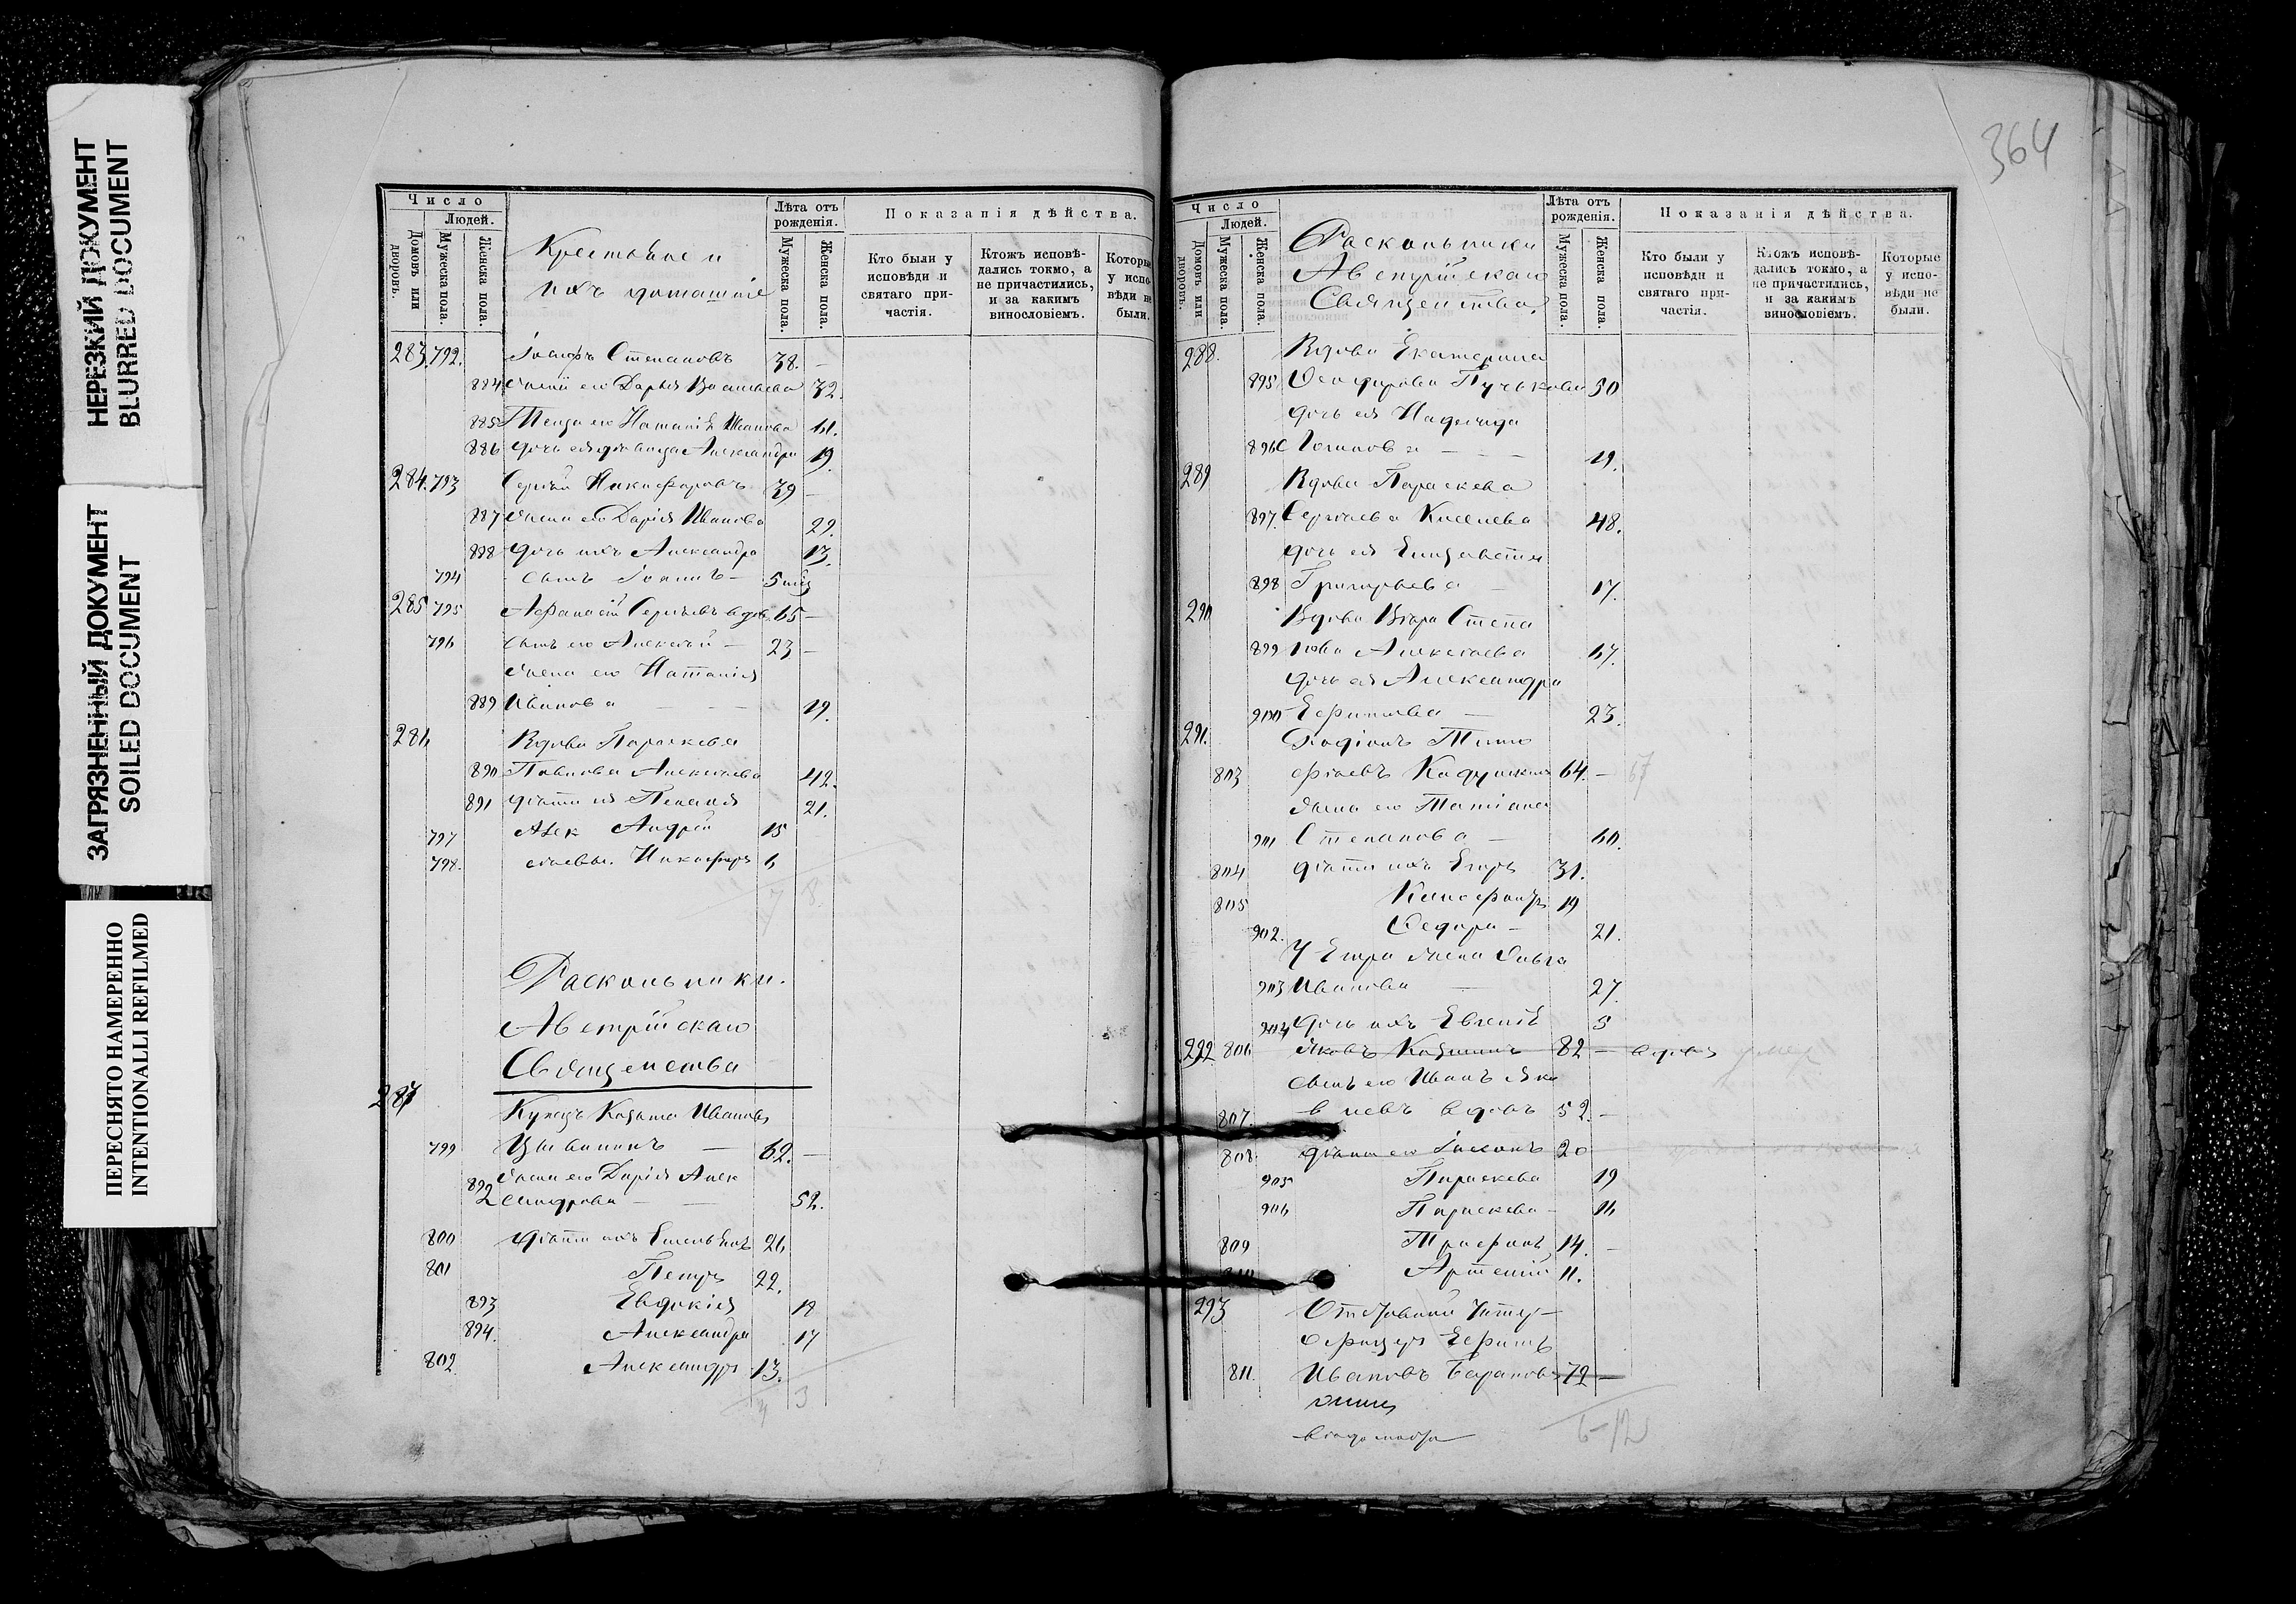 НЕРЕЗКИЙ ДОКУМЕНТ
BLURRED DOCUMENT
ЗАГРЯЗНЕННЫЙ ДОКУМЕНТ
SOILED DOCUMENT
ПЕРЕСНЯТО НАМЕРЕННО
INTENTIONALLI REFILMED
Число
Людей.
Домовъ или дворовъ.
Мужеска пола.
Женска пола.
Крестьяне и
ихъ домашніе
Лѣта отъ рожденія.
Мужеска пола.
Женска пола.
Показанія дѣйства.
Кто были у исповѣди и святаго причастія.
Ктожъ исповѣдались токмо, а не причастились, и за какимъ винословіемъ.
Которые у исповѣди не были.
283. 792. Іосифъ Степановъ 38. —
884 жена его Дарья Васильева 32.
885 Теща его Наталія Иванова 61.
886 дочь ея дѣвица Александра 19.
284. 793 Сергѣй Никифоровъ 39 —
887 жена его Дарія Иванова 29.
888 дочь ихъ Александра 13.
794 сынъ Іоаннъ — 5 мѣс
285 795 Афанасій Сергѣевъ вдов. 65 —
796 сынъ его Алексѣй — 23 —
жена его Наталія
889 Иванова — — — 19.
286 Вдова Параскева
890 Павлова Алексѣева 42.
891 дѣти ея Пелагія 21.
797 Алек Андрей 15
798. сѣевы. Никифоръ 6
7 8.
Раскольники.
Австрійскаго
Священства
287 Купецъ Козьма Ивановъ
799 — 62. —
892 жена его Дарія Алек
сандрова — — 52.
800 дѣти ихъ Емельянъ 26
801 Петръ 22.
893 Евдокія 18
894. Александра 17
802 Александръ 13.
4 3
364
Число
Людей.
Домовъ или дворовъ.
Мужеска пола.
Женска пола.
Раскольники
Австрійскаго
Священства.
Лѣта отъ рожденія.
Мужеска пола.
Женска пола.
Показанія дѣйства.
Кто были у исповѣди и святаго причастія.
Ктожъ исповѣдались токмо, а не причастились, и за какимъ винословіемъ.
Которые у исповѣди не были.
288. Вдова Екатерина
895. Пучькова 50
дочь ея Надежда
896 — — — 19.
289 Вдова Параскева
897. Сергѣева Киселева 48.
дочь ея Елизавета
898 Григорьева — 17.
290 Вдова Вѣра Степа
899 нова Алексѣева 67.
дочь ея Александра
900 Ефимова — 23.
291. Родіонъ Тимо
803 ѳѣевъ 64. — 67
жена его Татіана
901 Степанова — 60.
804 дѣти ихъ Егоръ 31.
805 Ксенофонтъ 19
902. Ѳедора — 21.
У Егора жена Ольга
903 Иванова — 27.
904 дочь ихъ Евгенія 5
292 806 Яковъ Козминъ 82 — вдовъ умер
сынъ его Иванъ Яко
807. влевъ вдовъ 52. —
808 дѣти его 20
905 Параскева 19
906 Параскева — 16
809 Трифонъ 14. —
810 Артемій 11.
293 Отставной Унтеръ-
офицеръ Ефимъ
811. Ивановъ Барановъ 72 —
6-12